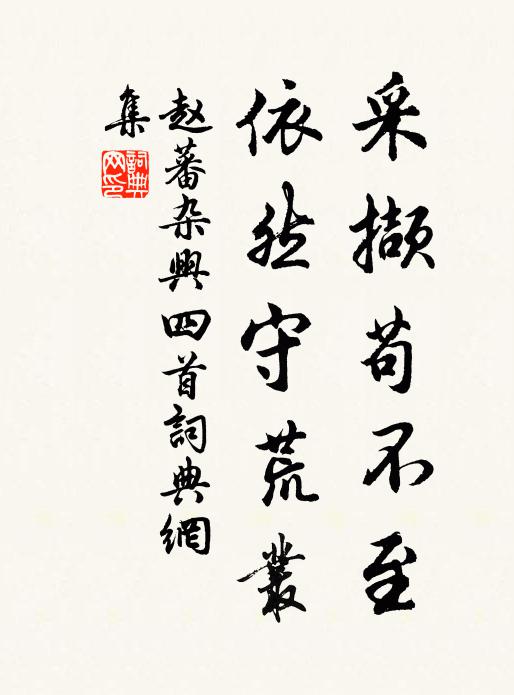 采撷苟不至
依然守荒叢
赵蕃杂興四首詞典網
集
詞典网印